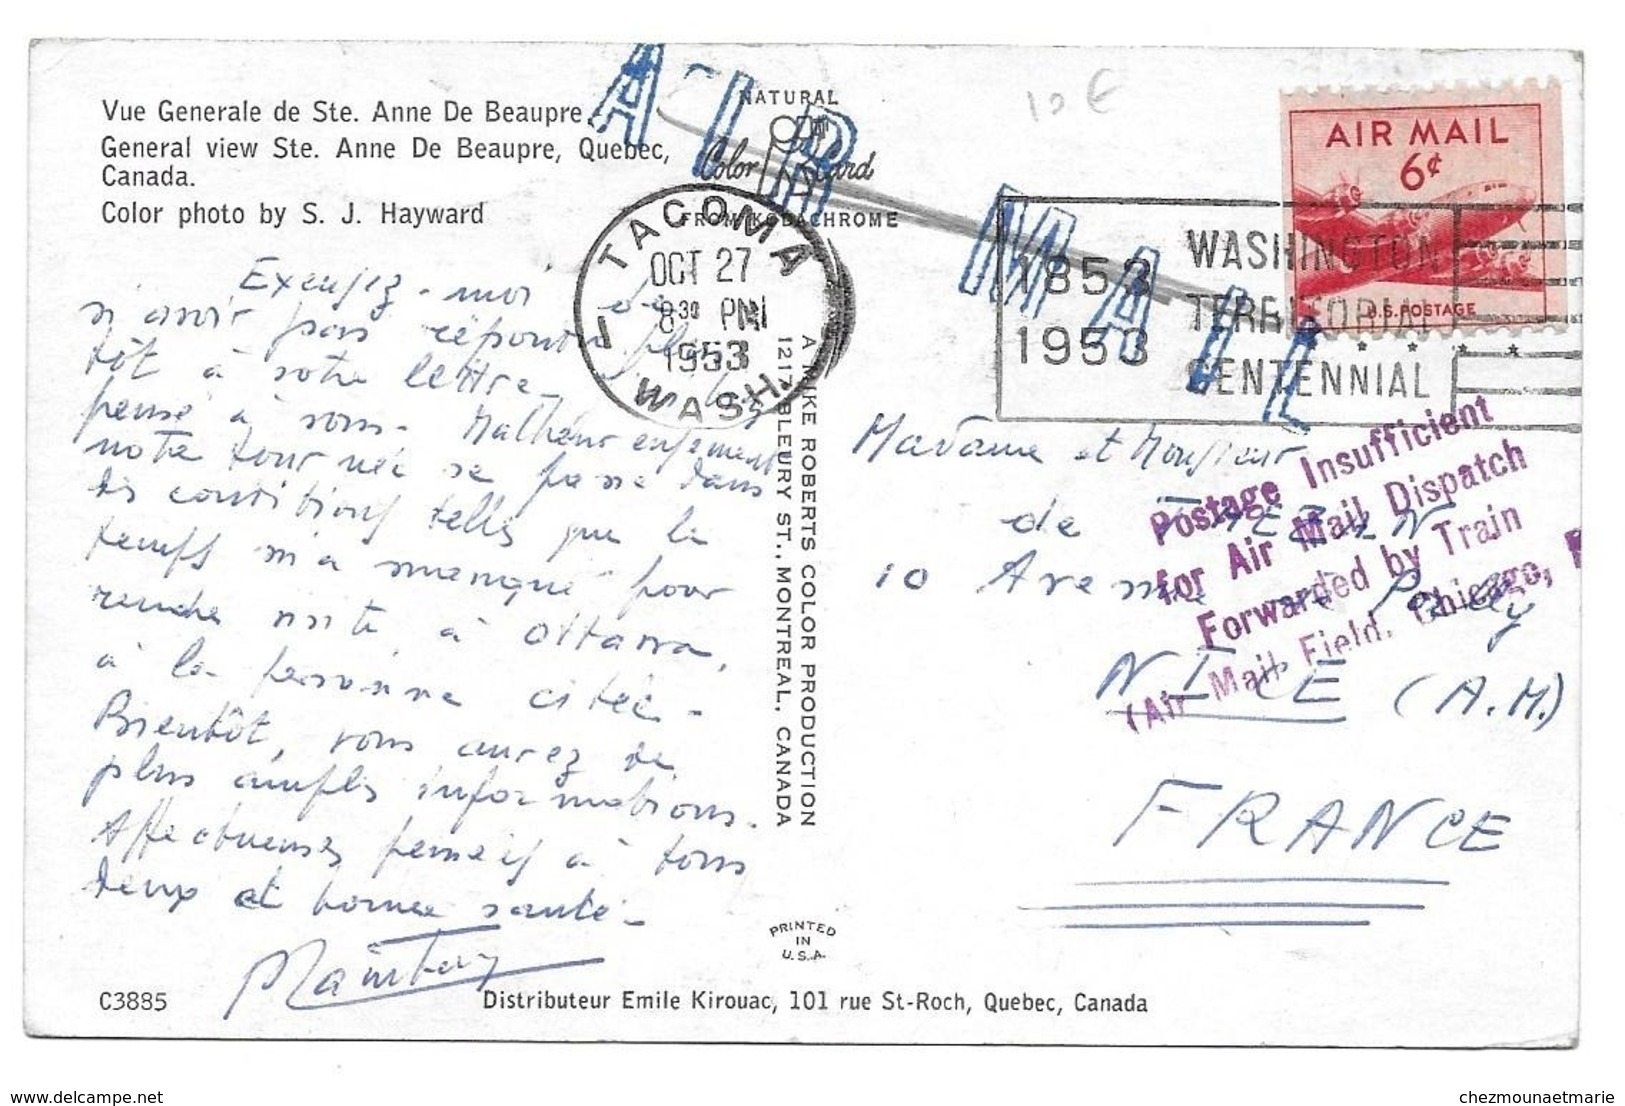 Vue Generale de Ste. Anne De Beaupre,
General view Ste. Anne De Beaupre, Quebec,
Canada.
Color photo by S. J. Hayward
NATURAL
Color Card
FROM KODACHROME
AIR MAIL
10 €
AIR MAIL
6¢
U.S. POSTAGE
TACOMA
OCT 27
8 30 PM
1953
WASH.
1
1853
1953
WASHINGTON
TERRITORIAL
CENTENNIAL
Excusez-moi de
n'avoir pas répondu plus
tôt à votre lettre.
pensé à vous. Malheureusement
notre tournée se passe dans
des conditions telles que le
temps m'a manqué pour
rendre visite à Ottawa,
à la personne citée.
Bientôt, vous aurez de
plus amples informations.
Affectueuses pensées à tous
deux et bonne santé.
A MIKE ROBERTS COLOR PRODUCTION
1217 BLEURY ST., MONTREAL, CANADA
Madame et Monsieur
de
10 Avenue
NICE (A.M.)
FRANCE
Postage Insufficient
for Air Mail Dispatch
Forwarded by Train
(Air Mail Field, Chicago,
PRINTED
IN
U.S.A.
C3885
Distributeur Emile Kirouac, 101 rue St-Roch, Quebec, Canada
www.delcampe.net
chezmounaetmarie